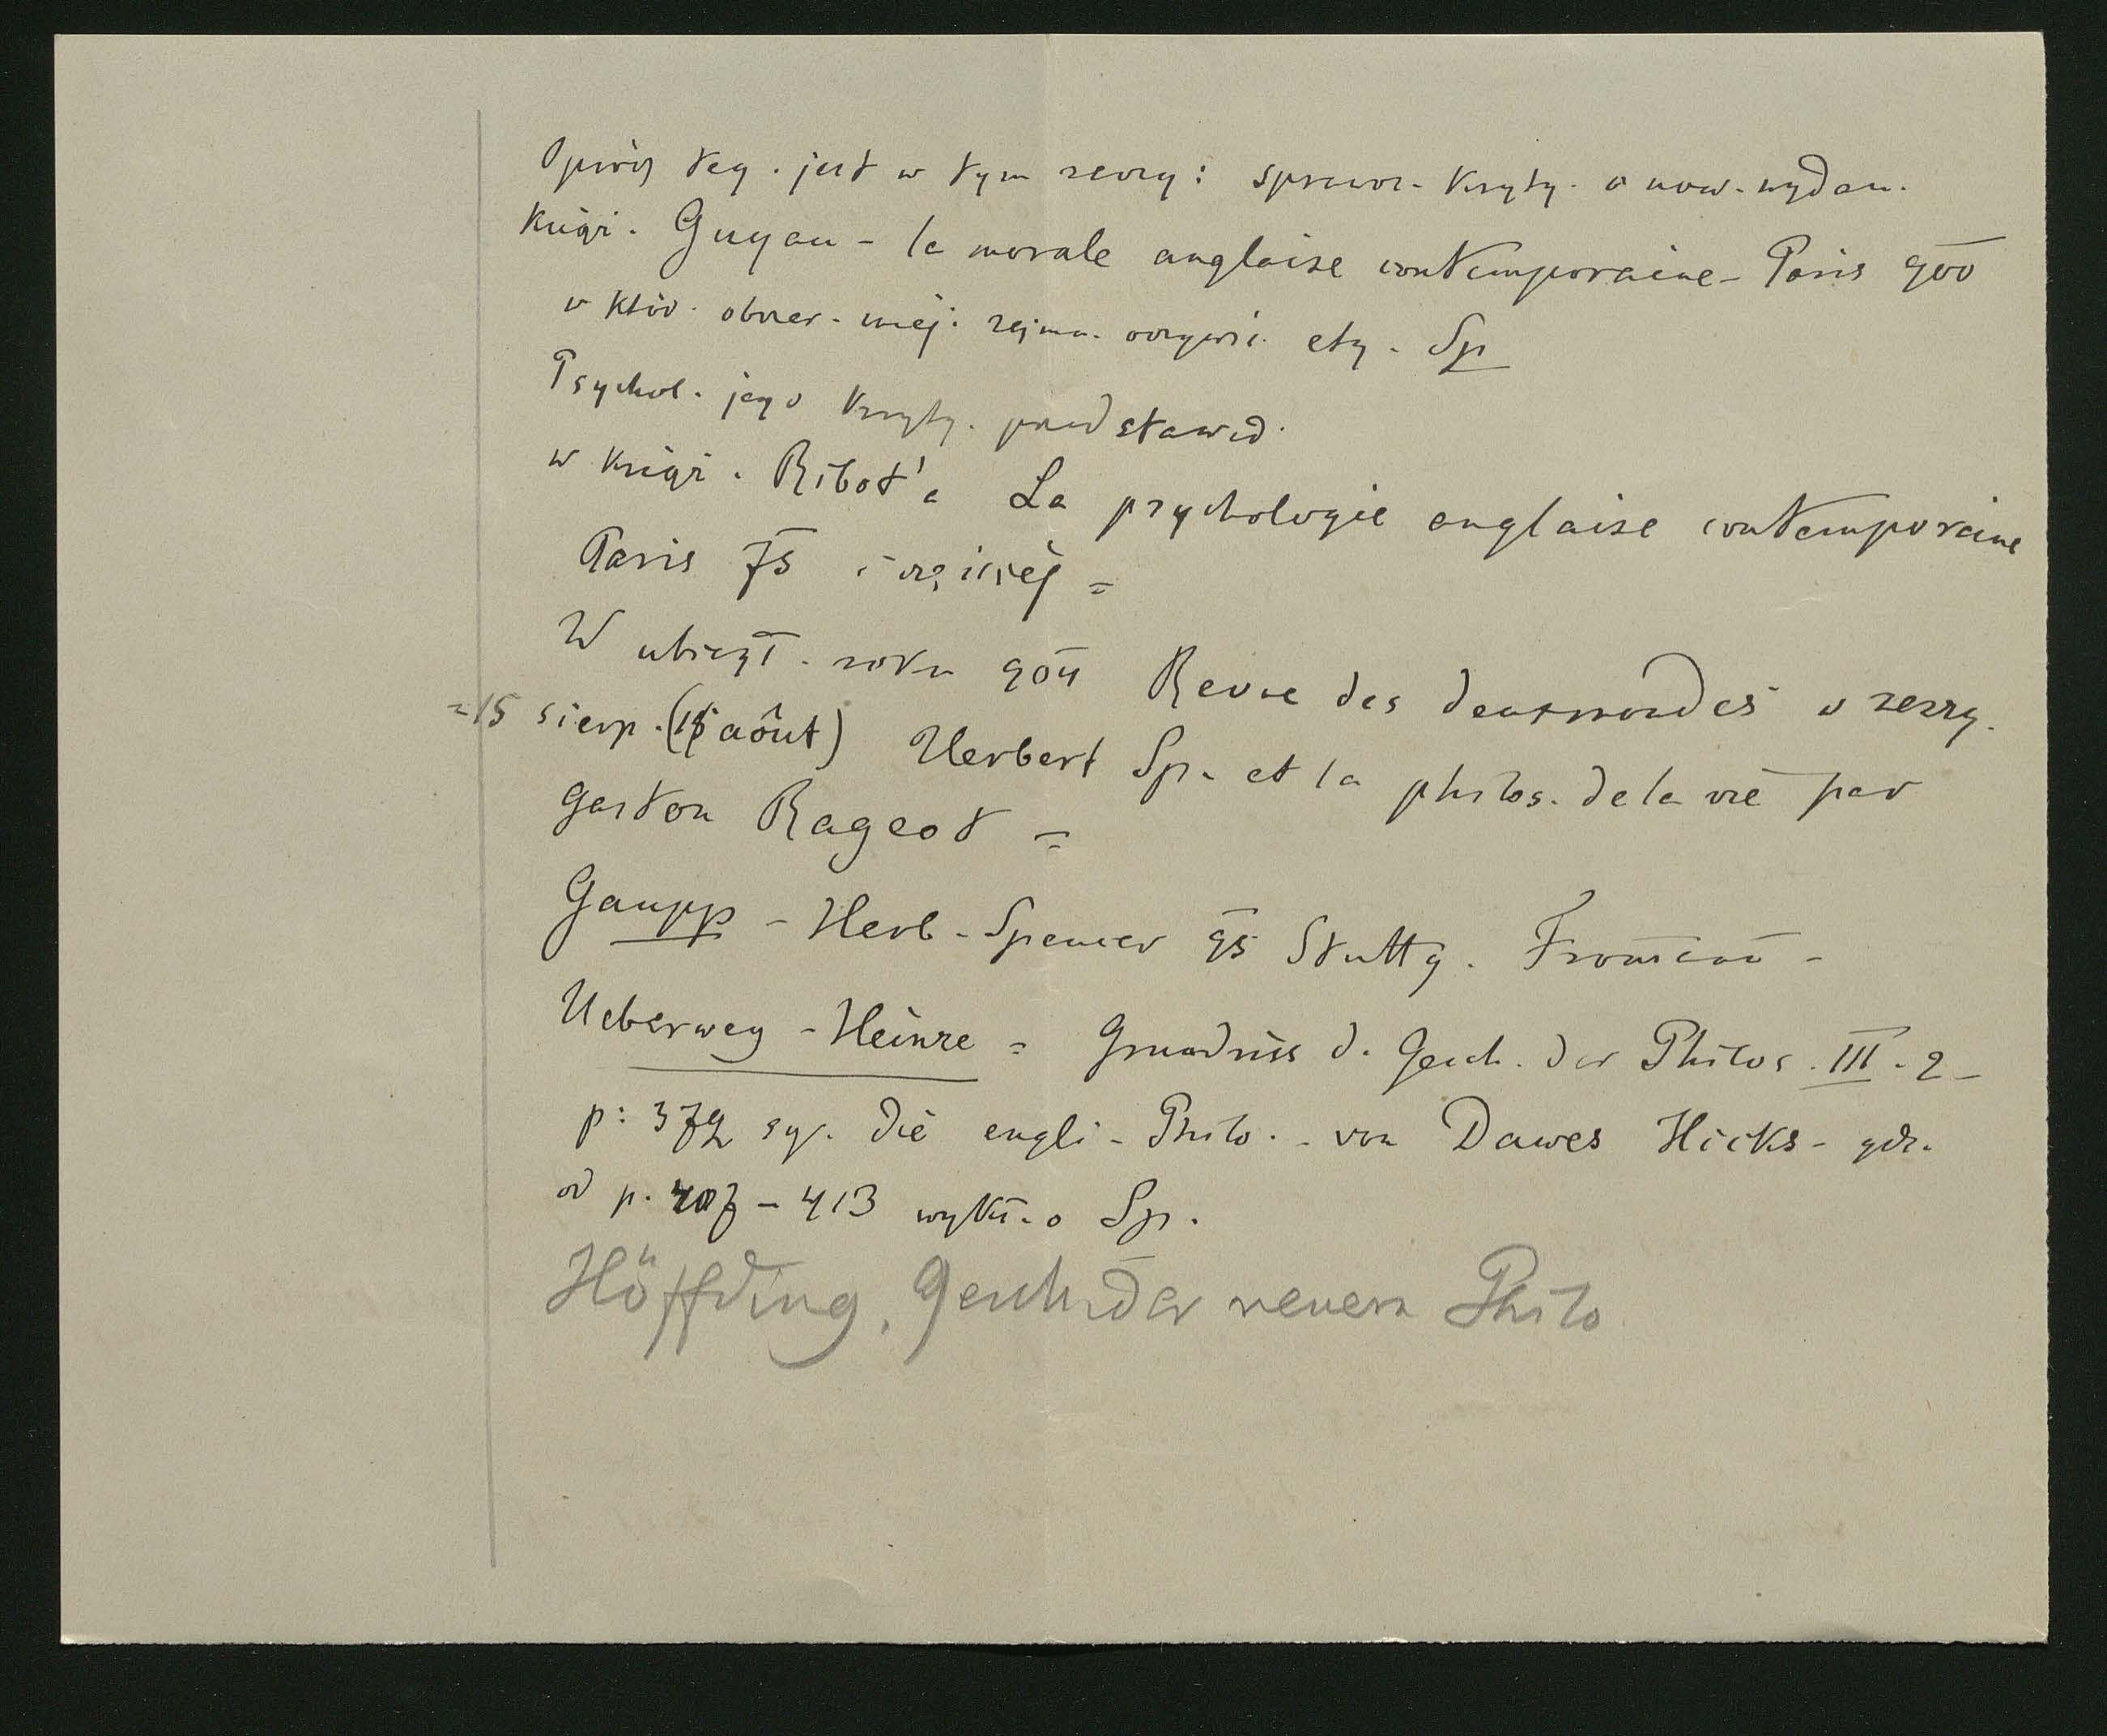 Oprócz teg. jest w tym zeszy: sprawoz. kryty. o now. wydan.
książ. Guyau - la morale anglaise contemporaine - Paris 900
w któr. obszer. miej. zajmu. oczywiś. ety. Sp
Psychol. jego kryty. przedstawio.
w książ. Ribot'a La psychologie anglaise contemporaine
Paris 75 i później =
W ubiegł. roku 904 Revue des deux mondes w zeszy.
=15 sierp. (15 août) Herbert Sp. et la philos. de la vie par
Gaston Rageot =
Gaupp - Herb. Spencer 95 Stuttg. Fromann -
Ueberweg - Heinze = Grundriss d. Gesch. der Philos. III. 2 -
p: 372 sq. Die engli. Philo. - von Dawes Hicks - gdz.
od p. 407 - 413 wykł. o Sp.
Höffding, Gesch. der neuern Philo